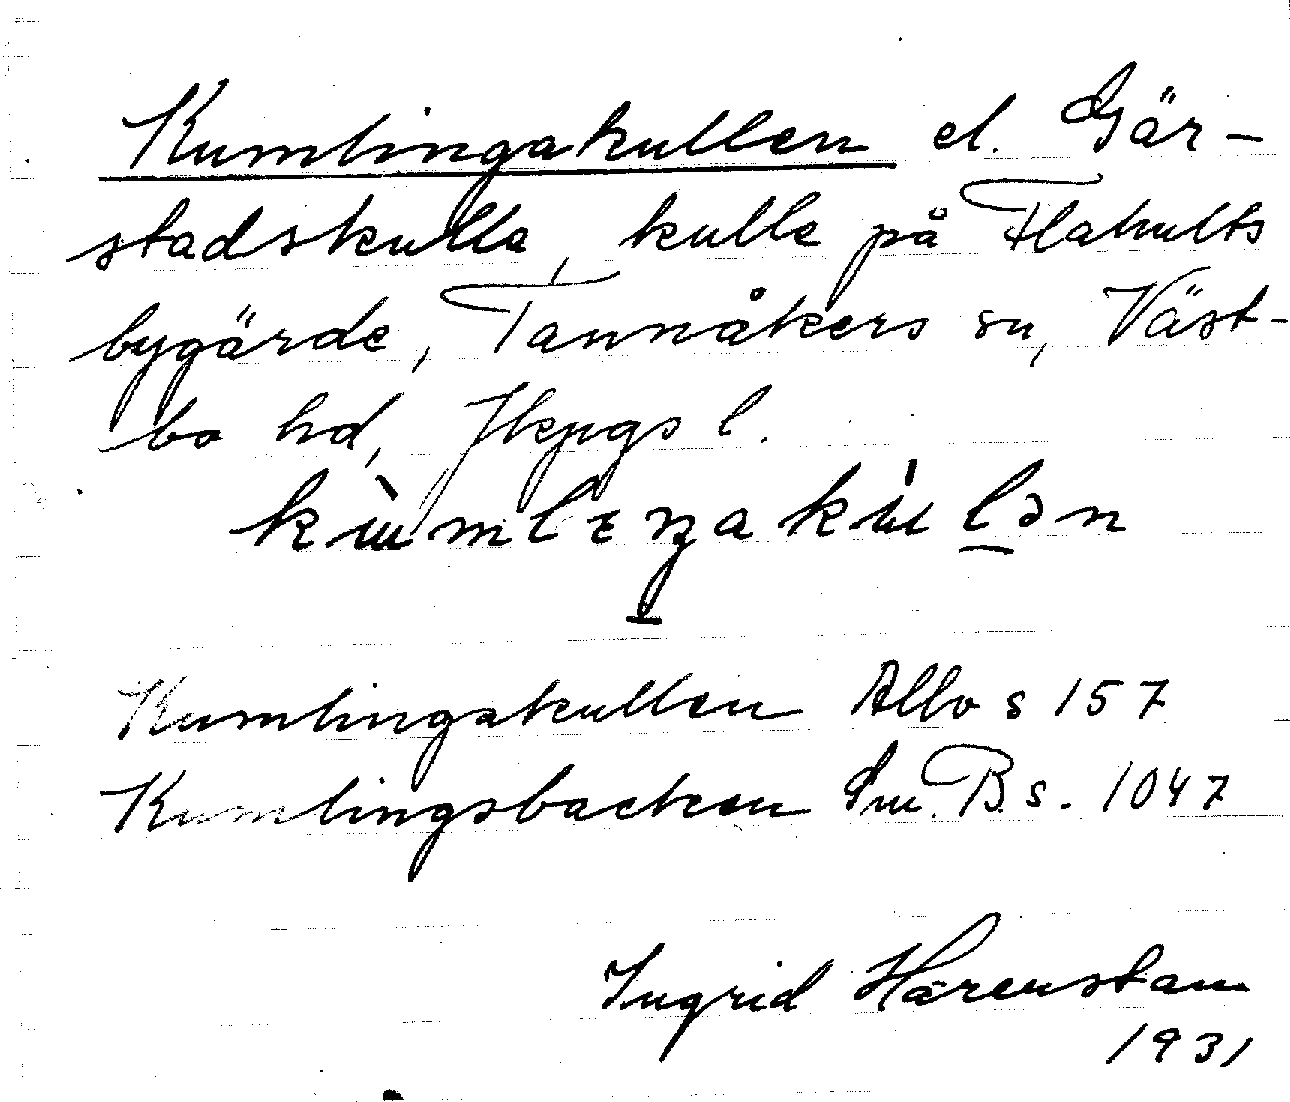 Kumlingakullen el. Gär-
stadskulle, kulle på Flahults
bygärde, Tannåkers sn, Väst-
bo hd, Jkpgs l.
kùmlɩŋakúlən
Kumlingakullen Allbo s 157
Kumlingsbacken Sm. B. s. 1047
Ingrid Härenstam
1931